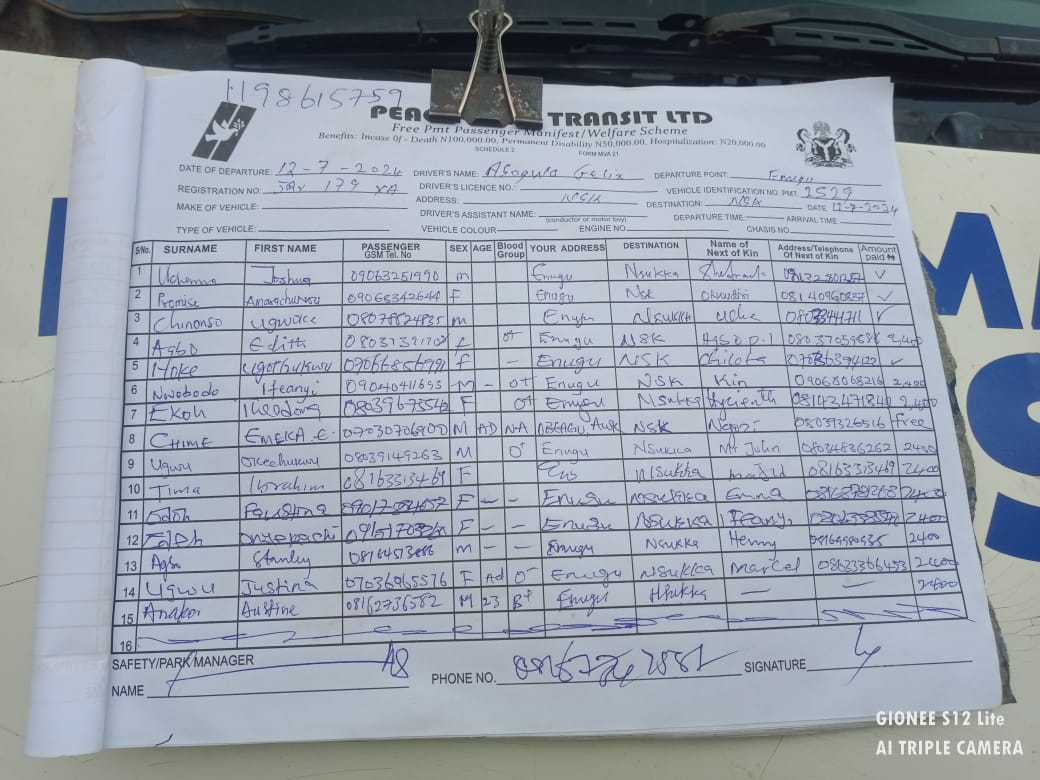 1198615759
PEAC TRANSIT LTD
Free Pmt Passenger Manifest/Welfare Scheme
Benefits: Incase Of - Death N100,000.00, Permanent Disability N50,000.00, Hospitalization: N20,000.00
SCHEDULE 2 FORM MVA 21
DATE OF DEPARTURE: 12-7-2024 DRIVER'S NAME: Felix DEPARTURE POINT: Enugu
REGISTRATION NO: 179 XA DRIVER'S LICENCE NO.: VEHICLE IDENTIFICATION NO. PMT 2529
MAKE OF VEHICLE: ADDRESS: NSK DESTINATION: NSK DATE 12-7-2024
DRIVER'S ASSISTANT NAME: (conductor or motor boy) DEPARTURE TIME: ARRIVAL TIME
TYPE OF VEHICLE: VEHICLE COLOUR ENGINE NO CHASIS NO.
S/No. SURNAME FIRST NAME PASSENGER GSM Tel. No SEX AGE Blood Group YOUR ADDRESS DESTINATION Name of Next of Kin Address/Telephone Of Next of Kin Amount paid ₦
1 Uchenna Joshua 09063251990 m Enugu Nsukka ✓
2 Promise 09065342644 F Enugu Nsk ✓
3 Chinonso Ugwoke 08078824835 m Enugu Nsukka Uche ✓
4 Agbo Edith F O+ Enugu NSK 2,400
5 F - Enugu NSK ✓
6 Nwobodo Ifeanyi 09040411693 M - O+ Enugu NSK Kin 09068068216 2,400
7 Ekoh Theodora F O+ Enugu Nsukka Hycienth 2,400
8 CHIME EMEKA E. 07030706900 M AD N-A Awk NSK Ngozi 08039326516 free
9 Ugwu Okechukwu 08039149263 M O+ Enugu Nsukka Mr John 08034836262 2400
10 Tima Ibrahim 08163313469 F Nsukka majid 08163313469 2400
11 Odoh Faustina F - - Enugu Nsukka Emma 2400
12 F - - Enugu Nsukka Ifeanyi 2400
13 Agbo Stanley m - - Enugu Nsukka Henry 2400
14 Ugwu Justina 07036965576 F Ad O- Enugu Nsukka Marcel 08063366453 2400
15 Austine 08162736582 M 23 B+ Enugu Nsukka — — 2400
16
SAFETY/PARK MANAGER
NAME PHONE NO. SIGNATURE
GIONEE S12 Lite
AI TRIPLE CAMERA